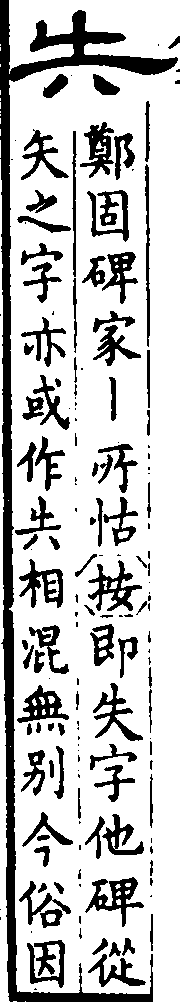 𫝆
鄭固碑家丨所怙按即失字他碑從
矢之字亦或作𫝆相混無別今俗因